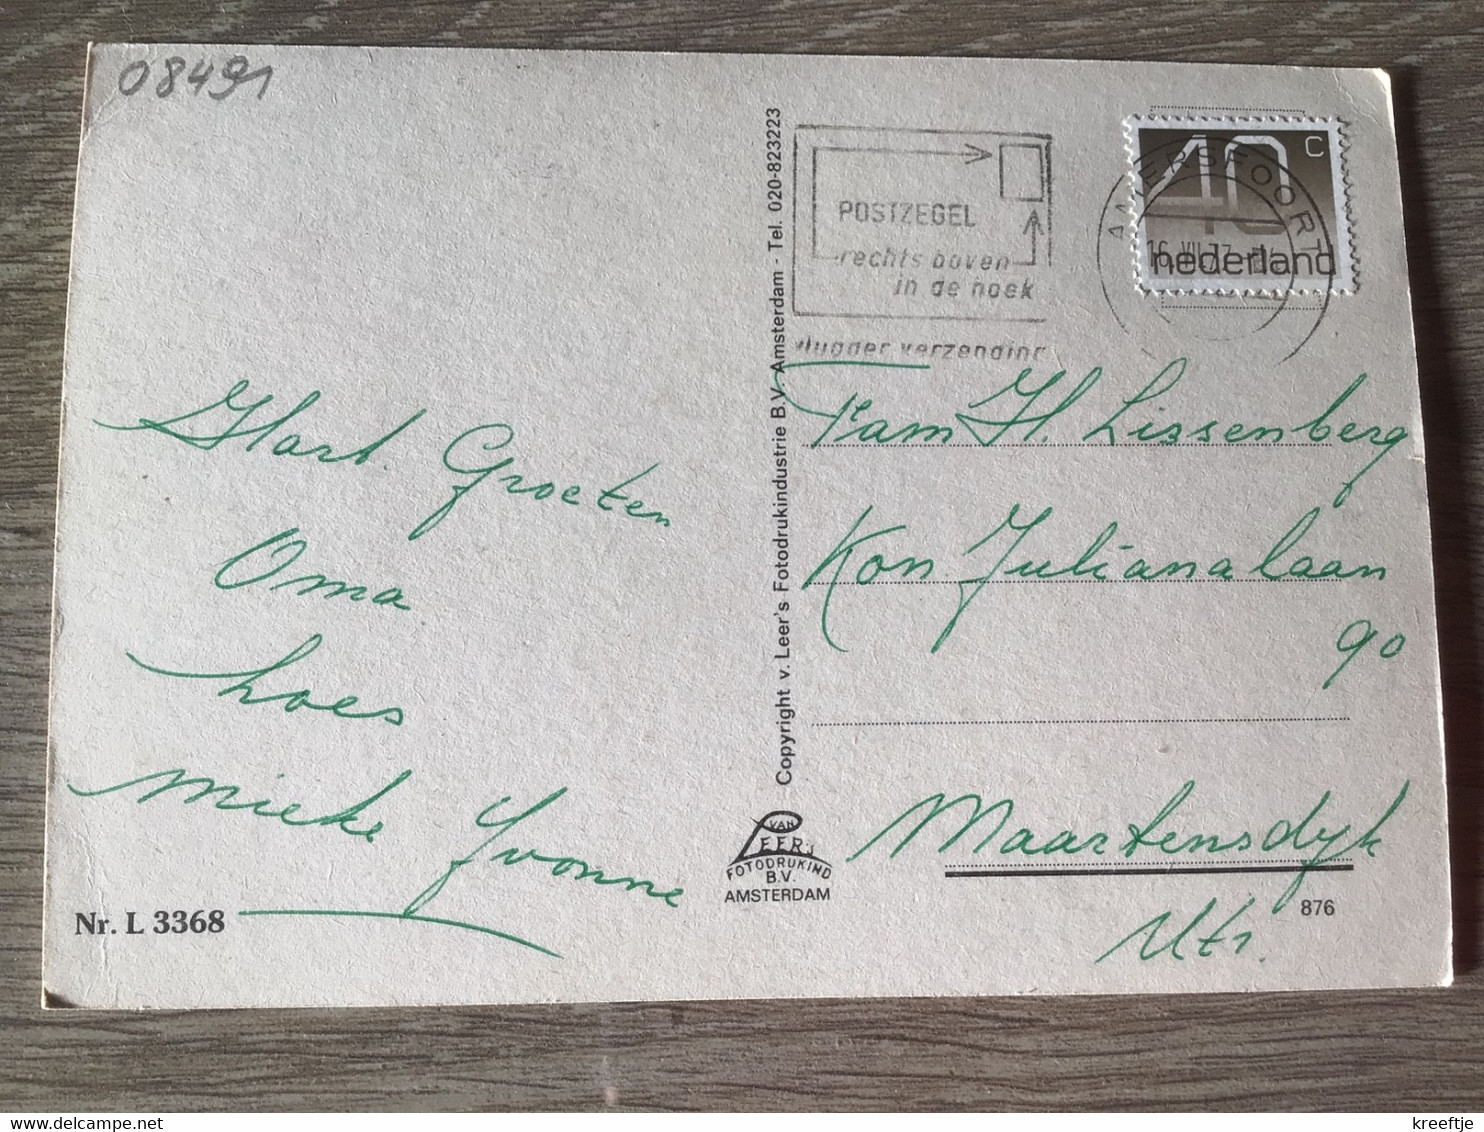 08491
Hart. Groeten
Oma
Loes
Mieke Yvonne
Nr. L 3368
Copyright v. Leer's Fotodrukindustrie B.V. Amsterdam - Tel. 020-823223
VAN
LEER'S
FOTODRUKIND
B.V.
AMSTERDAM
POSTZEGEL
rechts boven
in de hoek
vlugger verzending
AMERSFOORT
16.VII.77
40 C
nederland
Fam H. Lissenberg
Kon. Julianalaan
90
Maartensdyk
Utr.
876
kreeftje